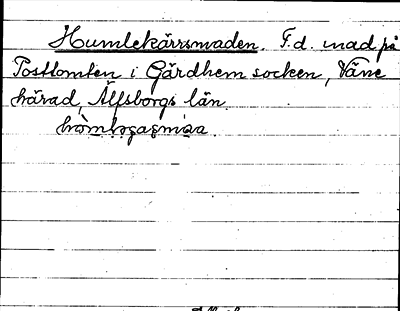 Humlekärrsmaden. F.d. mad på
Posttomten i Gärdhem socken, Väne
härad, Älfsborgs län.